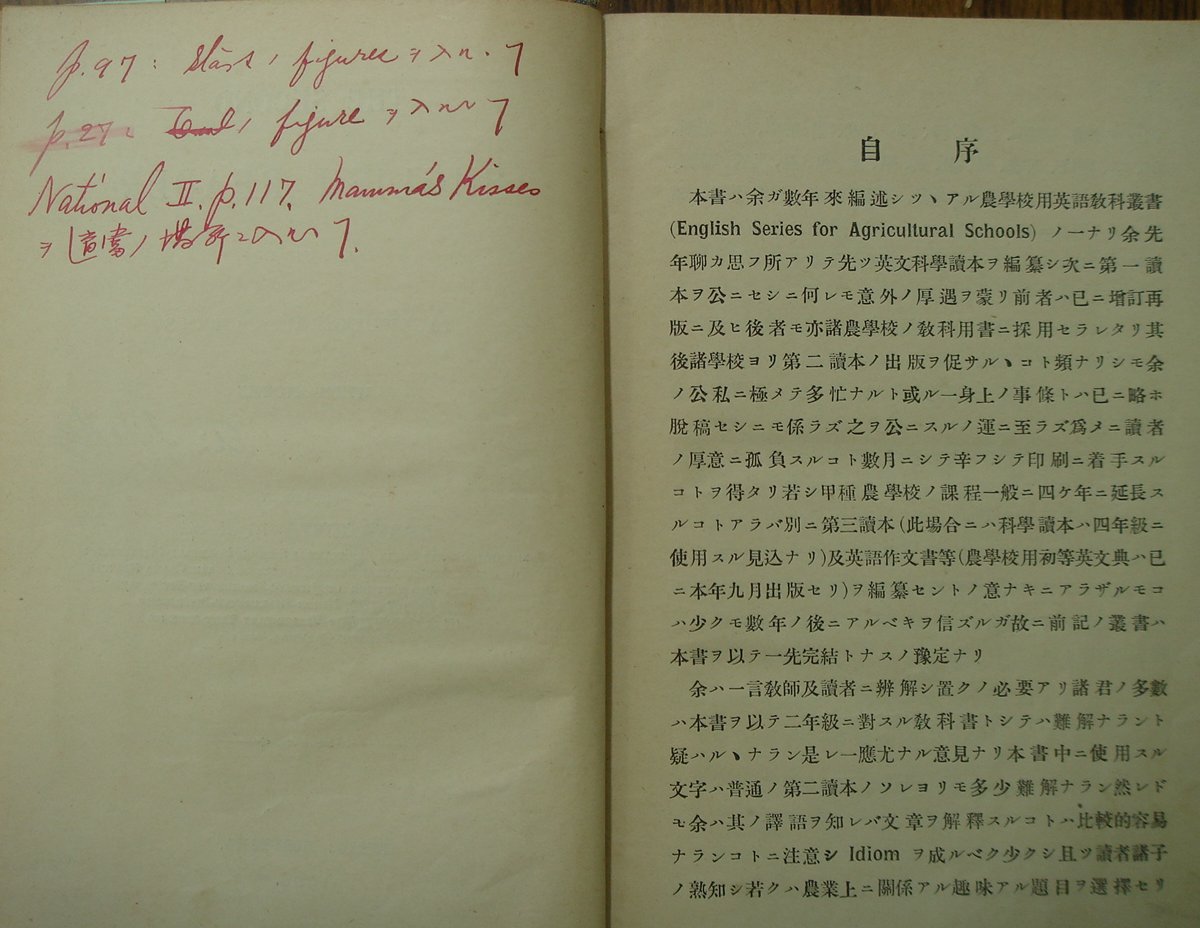 p. 97 : stars ノ figures ヲ入ルヽ 7
p. 27 : ノ figure ヲ入ルヽ 7
National II. p. 117. Mamma's Kisses
ヲ 遺書ノ場所ニ入ルヽ 7.
自序
本書ハ余ガ數年來編述シツヽアル農學校用英語敎科叢書
(English Series for Agricultural Schools) ノ一ナリ余先
年聊カ思フ所アリテ先ツ英文科學讀本ヲ編纂シ次ニ第一讀
本ヲ公ニセシニ何レモ意外ノ厚遇ヲ蒙リ前者ハ已ニ增訂再
版ニ及ヒ後者モ亦諸農學校ノ敎科用書ニ採用セラレタリ其
後諸學校ヨリ第二讀本ノ出版ヲ促サルヽコト頻ナリシモ余
ノ公私ニ極メテ多忙ナルト或ル一身上ノ事條トハ已ニ略ホ
脫稿セシニモ係ラズ之ヲ公ニスルノ運ニ至ラズ爲メニ讀者
ノ厚意ニ孤負スルコト數月ニシテ辛フシテ印刷ニ着手スル
コトヲ得タリ若シ甲種農學校ノ課程一般ニ四ケ年ニ延長ス
ルコトアラバ別ニ第三讀本(此場合ニハ科學讀本ハ四年級ニ
使用スル見込ナリ)及英語作文書等(農學校用初等英文典ハ已
ニ本年九月出版セリ)ヲ編纂セントノ意ナキニアラザルモコ
ハ少クモ數年ノ後ニアルベキヲ信ズルガ故ニ前記ノ叢書ハ
本書ヲ以テ一先完結トナスノ豫定ナリ
余ハ一言敎師及讀者ニ辨解シ置クノ必要アリ諸君ノ多數
ハ本書ヲ以テ二年級ニ對スル敎科書トシテハ難解ナラント
疑ハルヽナラン是レ一應尤ナル意見ナリ本書中ニ使用スル
文字ハ普通ノ第二讀本ノソレヨリモ多少難解ナラン然レド
モ余ハ其ノ譯語ヲ知レバ文章ヲ解釋スルコトハ比較的容易
ナランコトニ注意シ Idiom ヲ成ルベク少クシ且ツ讀者諸子
ノ熟知シ若クハ農業上ニ關係アル趣味アル題目ヲ選擇セリ